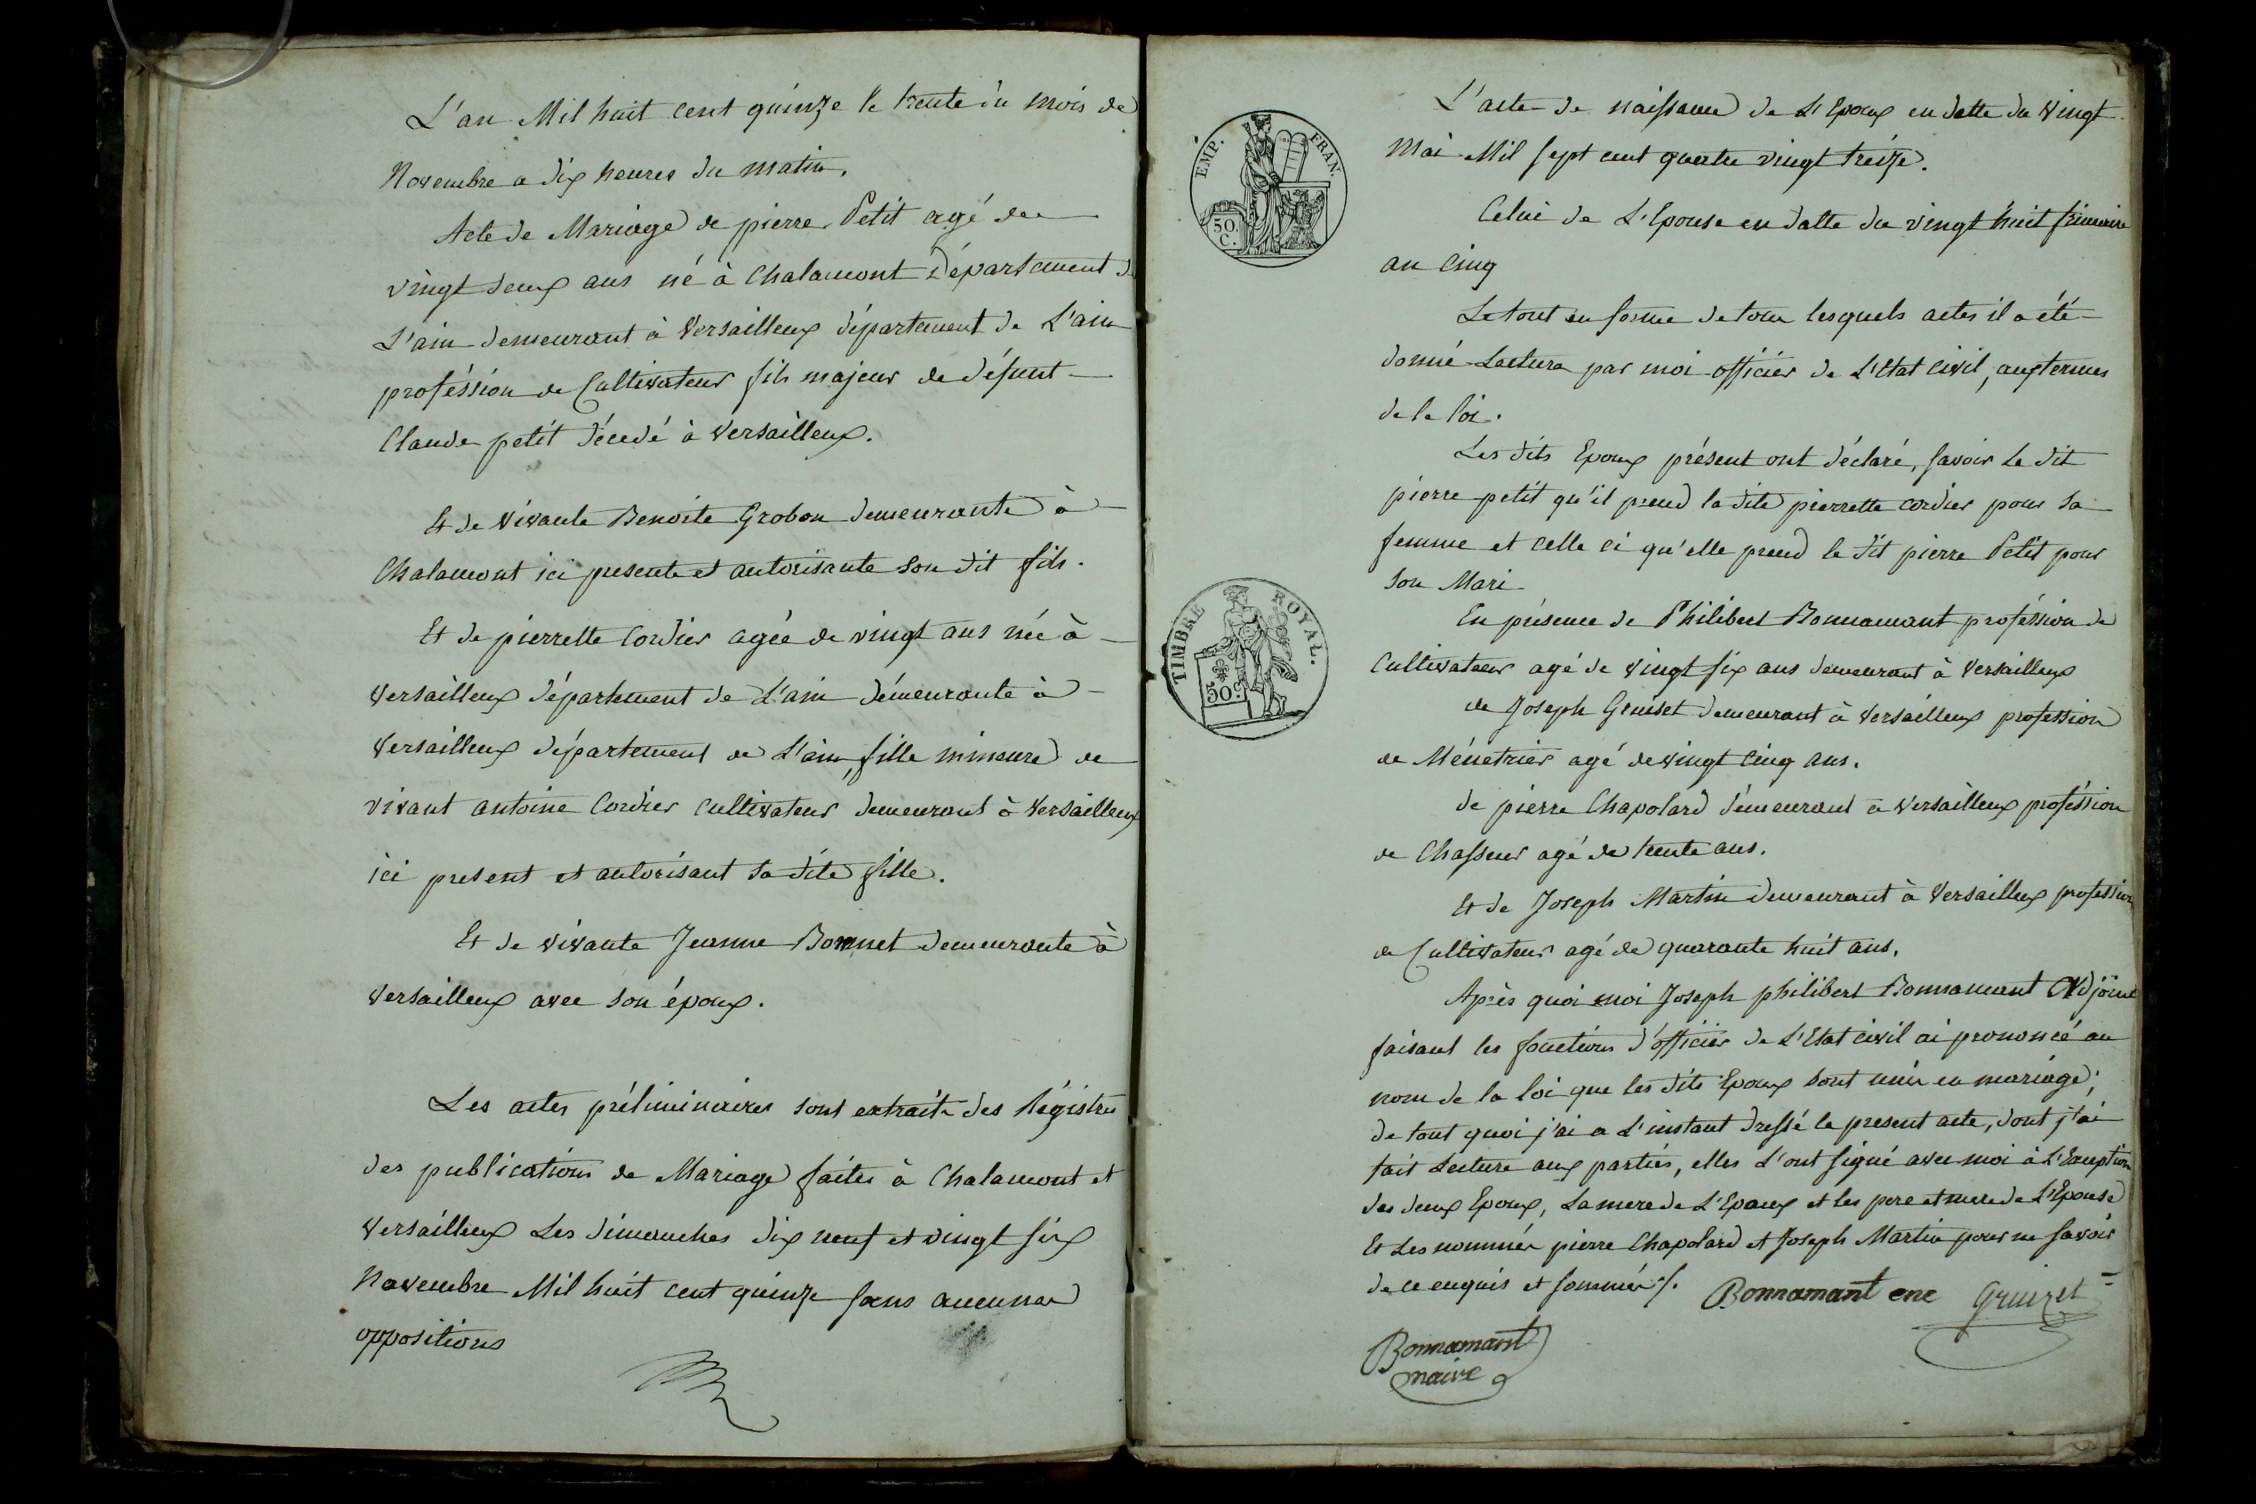 L'an Mil huit cent quinze le trente du mois de
Novembre a dix heures du matin,
Acte de Mariage de pierre Petit agé de
vingt deux ans né à Chalamont Département de
L'ain demeurant à Versailleux département de L'ain
proféssion de Cultivateur fils majeur de défunt
Claude petit décedé à Versailleux.
Et de Vivante Benoite Grobon demeurante à
Chalamont ici presente et autorisante son dit fils.
Et de pierrette Cordier agée de vingt ans née à
Versailleux département de L'ain démeurante à
Versailleux département de L'ain, fille mineure de
vivant antoine Cordier cultivateur demeurant à Versailleux
ici present et autorisant sa dite fille.
Et de vivante Jeanne Bonnet demeurante à
Versailleux avec son époux.
Les actes préliminaires sont extraits des Régistres
des publications de Mariage faites à Chalamont et
Versailleux Les dimanches dix neuf et vingt six
Novembre Mil huit cent quinze sans aucunes
oppositions
EMP. FRAN.
50.
C.
TIMBRE ROYAL.
50c
L'acte de naissance de L'Epoux en datte du vingt
Mai Mil sept cent quatre vingt treize.
Celui de L'Epouse en datte du vingt huit frimaire
an cinq
Le tout en forme de tous lesquels actes il a été
donné Lecture par moi officier de L'Etat civil, aux termes
de la loi.
Les dits Epoux présent ont déclaré, savoir Le dit
pierre petit qu'il prend la dite pierrette cordier pour sa
femme et celle ci qu'elle prend le dit pierre Petit pour
son Mari
En présence de Philibert Bonnamant proféssion de
Cultivateur agé de vingt six ans demeurant à Versailleux
de Joseph Gruiset demeurant à Versailleux profession
de Ménetrier agé de vingt cinq ans.
de pierre Chapolard démeurant à Versailleux proféssion
de Chasseur agé de trente ans.
Et de Joseph Martin demeurant à Versailleux profession
de Cultivateur agé de quarante huit ans.
Après quoi moi Joseph philibert Bonnamant Adjoint
faisant les fonctions d'officier de L'Etat civil ai prononcé au
nom de la loi que les dits Epoux sont unis en mariage;
de tout quoi j'ai a L'instant dressé le present acte, dont j'ai
fait Lecture aux parties, elles L'ont signé avec moi à L'Exception
des deux Epoux, La mere de L'Epoux et les pere et mere de L'Epouse
Et Les nommés pierre Chapolard et Joseph Martin pour ne savoir
de ce enquis et sommés
Bonnamant Gruizet
Bonnamant
maire